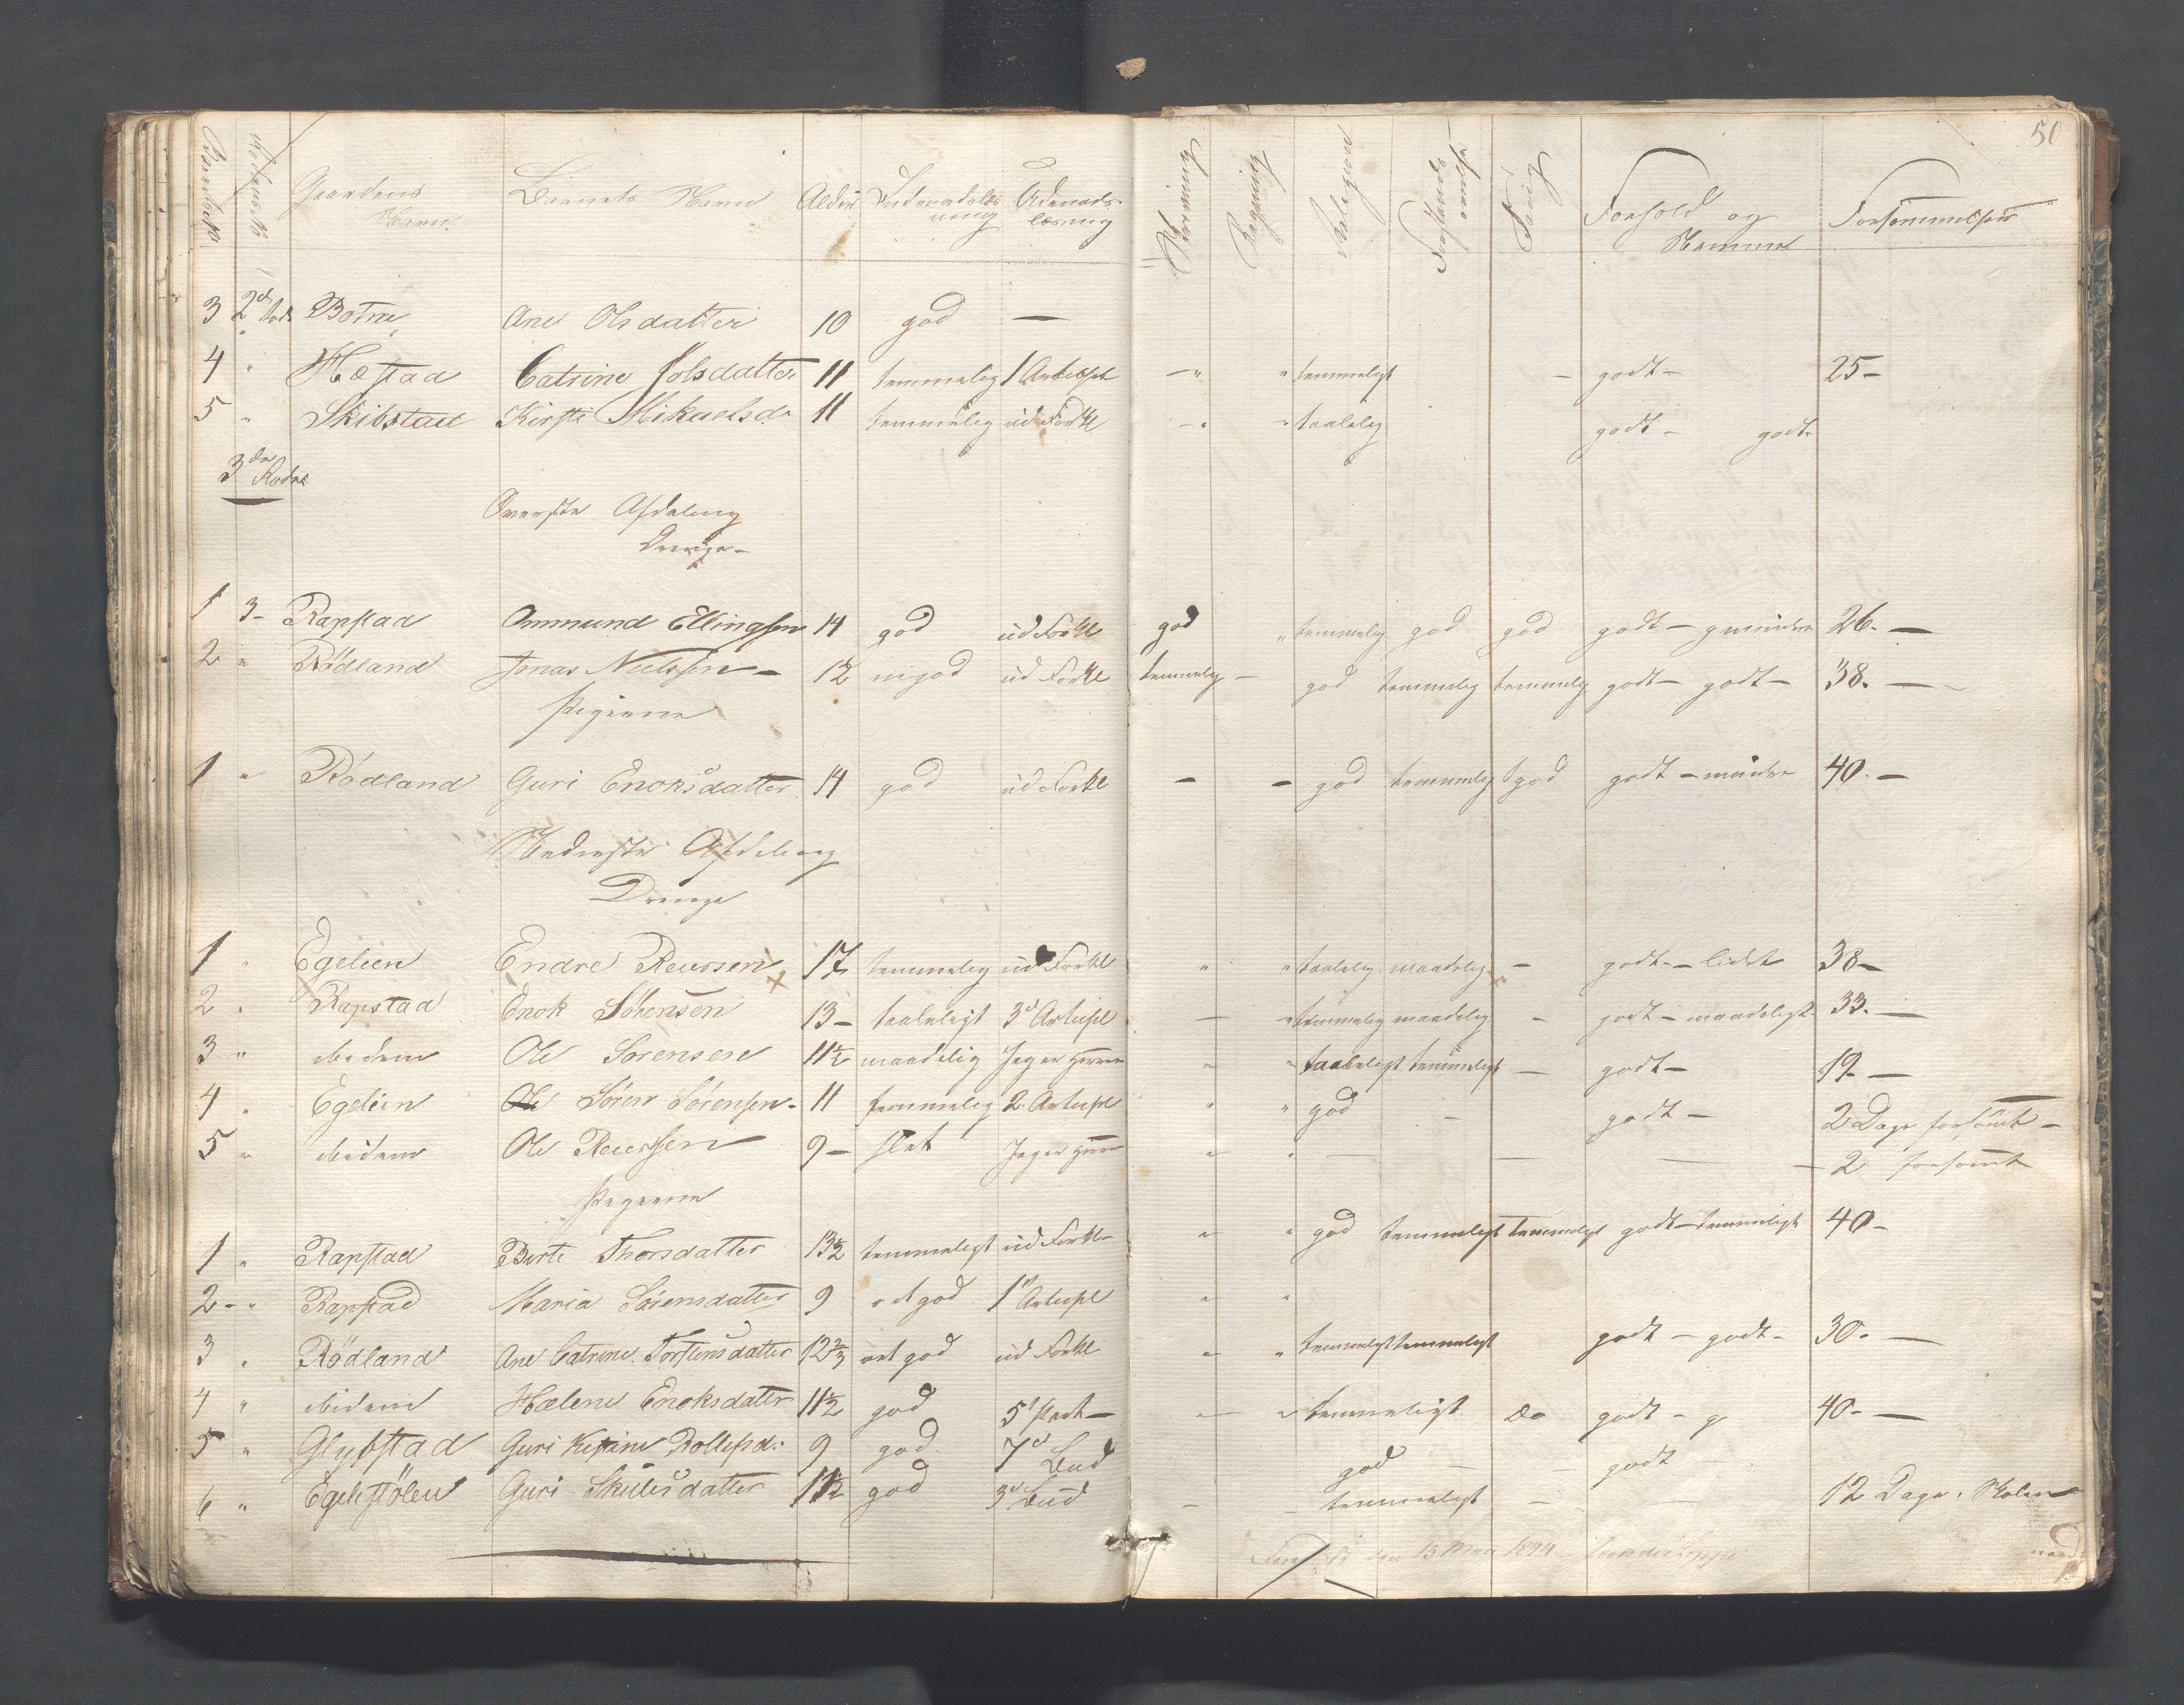 50
Gaardens Navn Barnets Navn Alder Indenadslæsning Udenadslæsning Skrivning Regning Religion Forstands Sang Forhold og Nemme Forsømmelser
3 2d Rode Botne Ane Olsdatter 10 god —
4 " Hæstad Catrine Jolsdatter 11 temmelig 1 Artikel — " " temmeligt — godt — 25 —
5 " Skibstad Kirsti Mikaelsd. 11 temmelig ud Forkl — " " taalelig godt — godt
3die Rode
Øverste Afdeling
Drenge —
1 3 — Rapstad Ommund Ellingsen 14 god ud Forkl god " temmelig god god godt — g mindre 26. —
2 " Rödland Jonas Nielssen — 12 ud Forkl temmelig — god temmelig temmelig godt — godt — 38. —
Pigerne
1 " Rödland Guri Enoksdatter 14 god ud Forkl — — god temmelig god godt — mindre 40. —
Nederste Afdeling
Drenge
1 " Egelien Endre Reiersen 17 temmelig ud Forkl " " taalelig maadelig — godt — lidet 38 —
2 " Rapstad Enok Sörensen 13 — taaleligt 3d Artikel — " temmelig maadelig — godt — maadeligt 33. —
3 " ibidem Ole Sörensen 11½ maadelig " " taaleligt temmeligt — godt — 19. —
4 " Egelien Ole Sören Sörensen — 11 temmelig 2. Artikel " " god — godt — 2 Dage forsömt —
5 " ibidem Ole Reiersen 9 — slet " " — — — 2 forsömt
Pigerne
1 " Rapstad Berte Thorsdatter 13½ temmeligt ud Forkl — " " god temmeligt temmeligt godt — temmeligt 40 —
2 — " Rapstad Maria Sörensdatter 9 ret god 1 Artikel " "
3 " Rödland Ane Catrine Torstensdatter 12⅔ ret god ud Forkl " " temmeligt temmeligt godt — godt — 30. —
4 " ibidem Hælene Enoksdatter 11½ god 5t Part — " " temmeligt do godt — g 40 —
5 " Glypstad Guri 9 god 7d Bud god — — godt —
6 " Egelistölen Guri Skulesdatter 11½ god 3d Bud — temmeligt — — 12 Dage i Skolen
13 Mai 1844